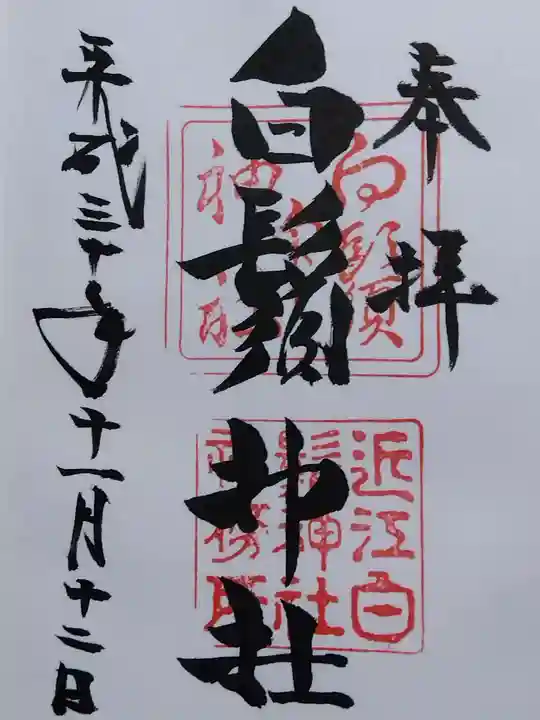 奉拝
白鬚神社
近江白
鬚神社
社務所
平成三十年十一月十二日